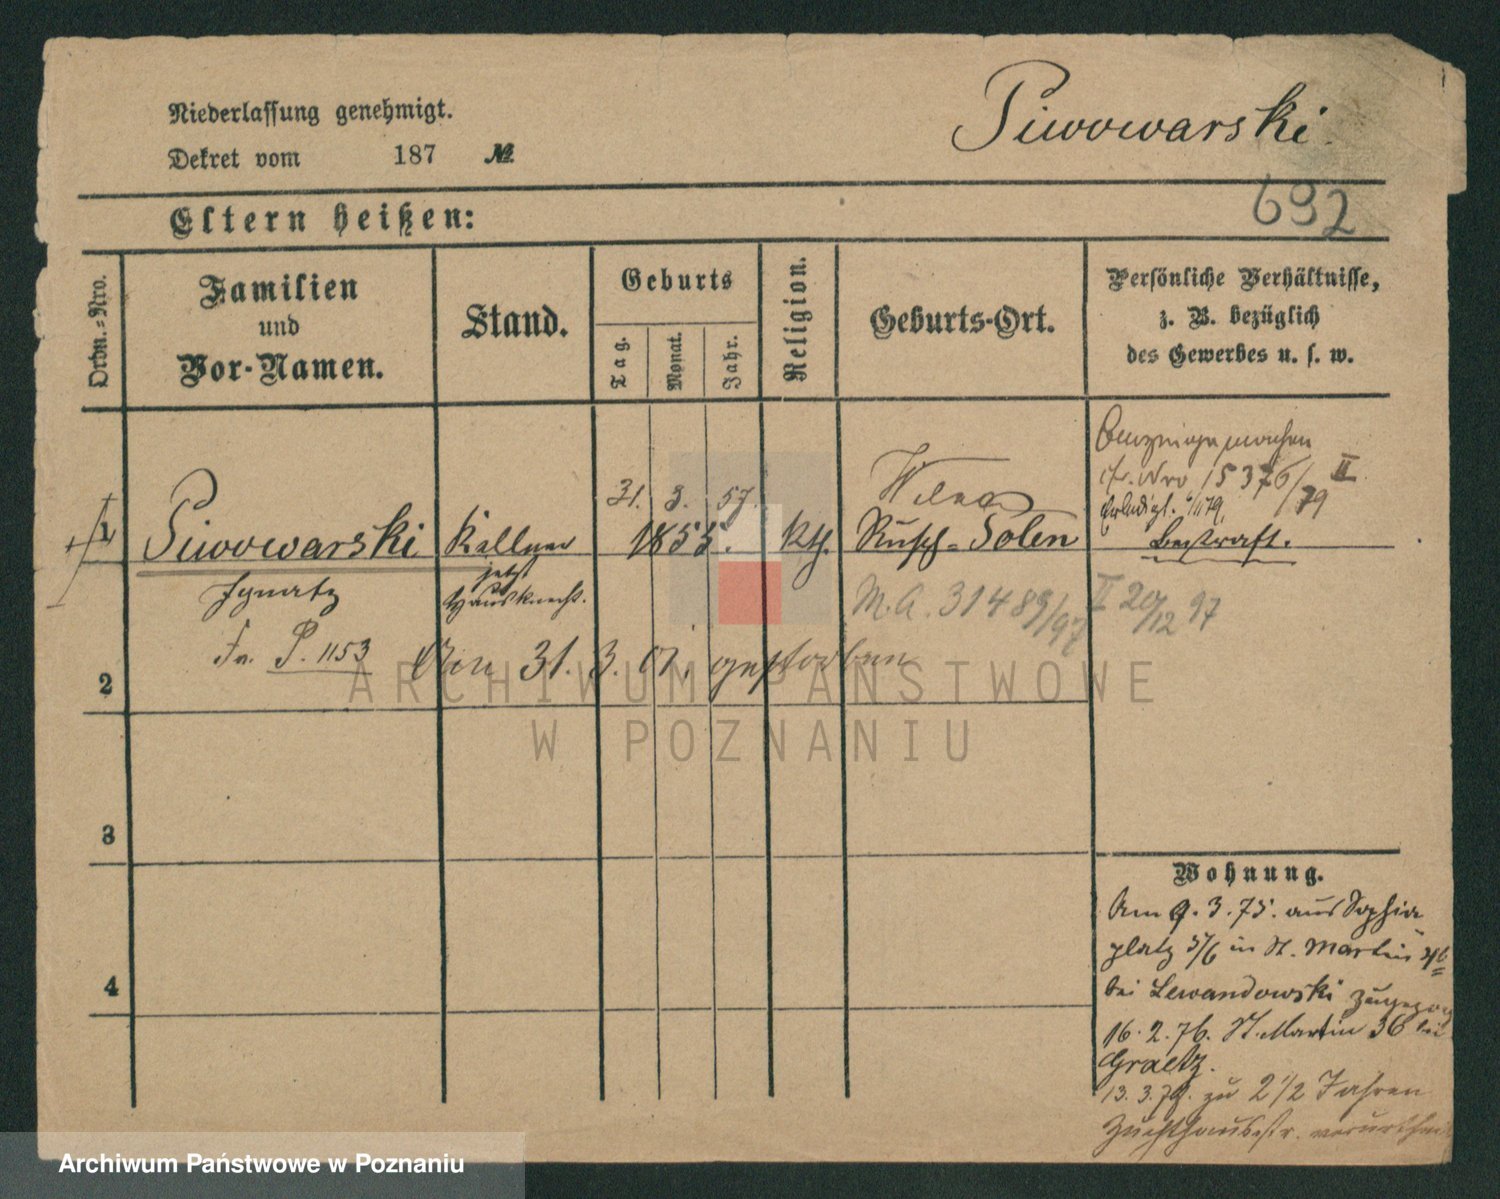 Niederlassung genehmigt.
Dekret vom 187 №
Piwowarski.
692
Eltern heißen:
Ordn.=Nro.
Familien
und
Vor-Namen.
Stand.
Geburts
Tag.
Monat.
Jahr.
Religion.
Geburts-Ort.
Persönliche Verhältnisse,
z. B. bezüglich
des Gewerbes u. s. w.
1
Piwowarski
Ignatz
Fr. P. 1153
Kellner
jetzt
Hausknecht.
31. 3. 57.
1855.
Kth.
Wilna
Russ.=Polen
cfr. Nro 15376/79 II
Erledigt.
Bestraft.
M. A. 31489/97 II 20/12 97
Den 31. 3. 01. gestorben
2
3
4
Wohnung.
Am 9. 3. 75. aus Sophia
platz 5/6 in St. Martin
bei Lewandowski zugezog
16. 2. 76. St. Martin 36 bei
Graetz.
13. 3. 79. zu 2 1/2 Jahren
Zuchthausstr. verurtheilt
ARCHIWUM PAŃSTWOWE
W POZNANIU
Archiwum Państwowe w Poznaniu